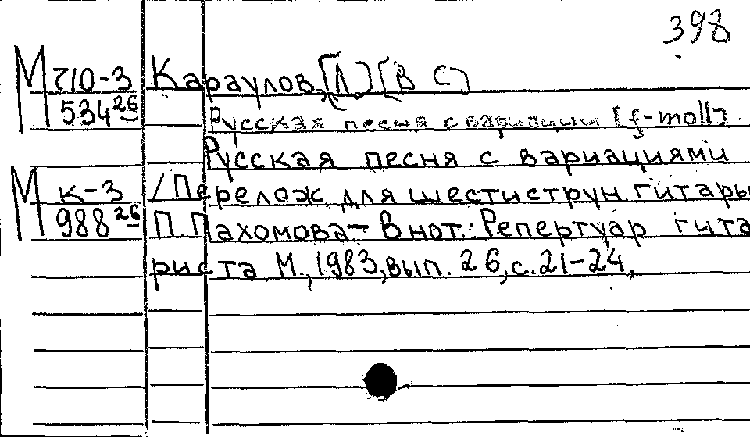 398
М 710-3 Караулов, [Л.] (В С)
534 26 Русская песня с вариации [f-moll]
Русская песня с вариациями
М К-3 / Перелож для шестиструн. гитары
988 26 П. Пахомова – В нот.: Репертуар гита
риста М., 1983, вып. 26, с. 21-24.